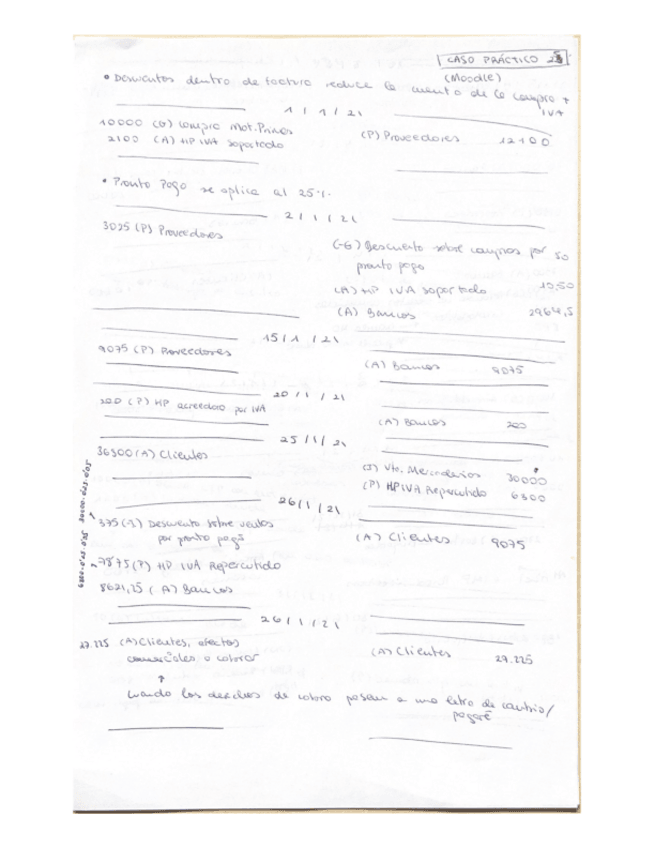 CASO PRÁCTICO 25
(Moodle)
• Descuentos dentro de factura reduce la cuenta de la compra + IVA
1 / 1 / 21
10000 (G) Compra Mat. Primas
2100 (A) HP IVA soportado
(P) Proveedores 12100
• Pronto Pago se aplica al 25%.
2 / 1 / 21
3025 (P) Proveedores
(-G) Descuento sobre compras por 50
pronto pago
(A) HP IVA soportado 10,50
(A) Bancos 2964,5
15 / 1 / 21
9075 (P) Proveedores
(A) Bancos 9075
20 / 1 / 21
200 (P) HP acreedora por IVA
(A) Bancos 200
25 / 1 / 21
36300 (A) Clientes
(I) Vta. Mercaderías 30000
(P) HP IVA Repercutido 6300
26 / 1 / 21
30000·0'25·0'05
375 (-I) Descuento sobre ventas
por pronto pago
(A) Clientes 9075
6300·0'25·0'05
78'75 (P) HP IVA Repercutido
8621,25 (A) Bancos
26 / 1 / 21
27.225 (A) Clientes, efectos
comerciales a cobrar
(A) Clientes 27.225
Cuando los derechos de cobro pasan a una letra de cambio/
pagaré